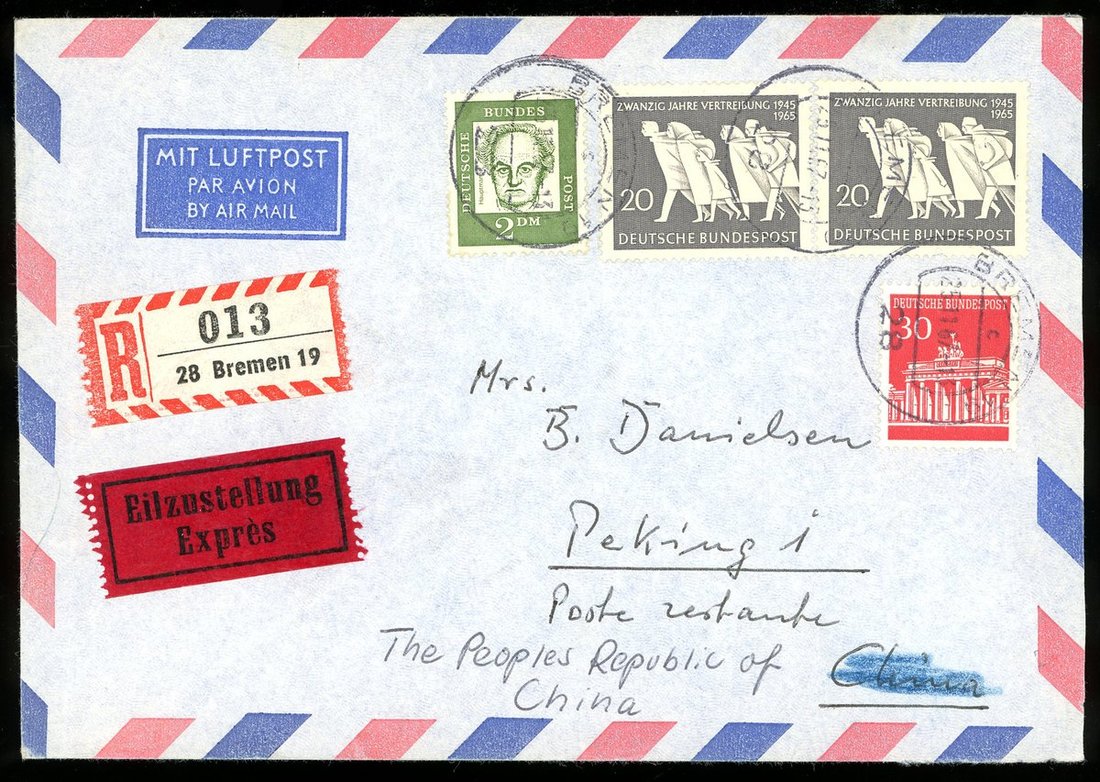 MIT LUFTPOST
PAR AVION
BY AIR MAIL
DEUTSCHE BUNDES POST
2 DM
ZWANZIG JAHRE VERTREIBUNG 1945
1965
20
DEUTSCHE BUNDESPOST
ZWANZIG JAHRE VERTREIBUNG 1945
1965
20
DEUTSCHE BUNDESPOST
R
013
28 Bremen 19
DEUTSCHE BUNDESPOST
30
BREMEN
28
Eilzustellung
Exprès
Mrs.
B. Danielsen
Peking 1
Poste restante
The Peoples Republic of China
China